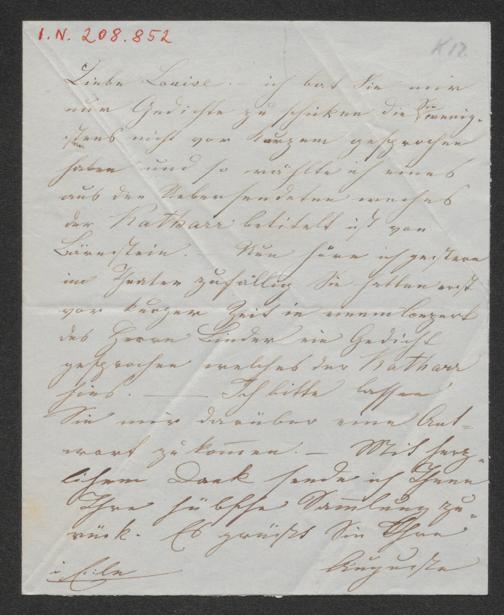 I.N. 208.852
K 12.
Liebe Louise – ich bat Sie mir
nur Gedichte zu schicken die Sie wenig-
stens nicht vor kurzem gesprochen
haben und so wählte ich eines
aus den Uebersendeten welches
der Katharr betitelt ist von
Bärnstein. Nun höre ich gestern
im Theater zufällig Sie hätten erst
vor kurzer Zeit in einem Conzert
des Herrn Binder ein Gedicht
gesprochen welches der Katharr
hies. — Ich bitte lassen
Sie mir darüber eine Ant-
wort zukommen. – Mit herz-
lichem Dank sende ich Ihnen
Ihre hübsche Sammlung zu-
rück. Es grüßt Sie Ihre
i. Eile Auguste